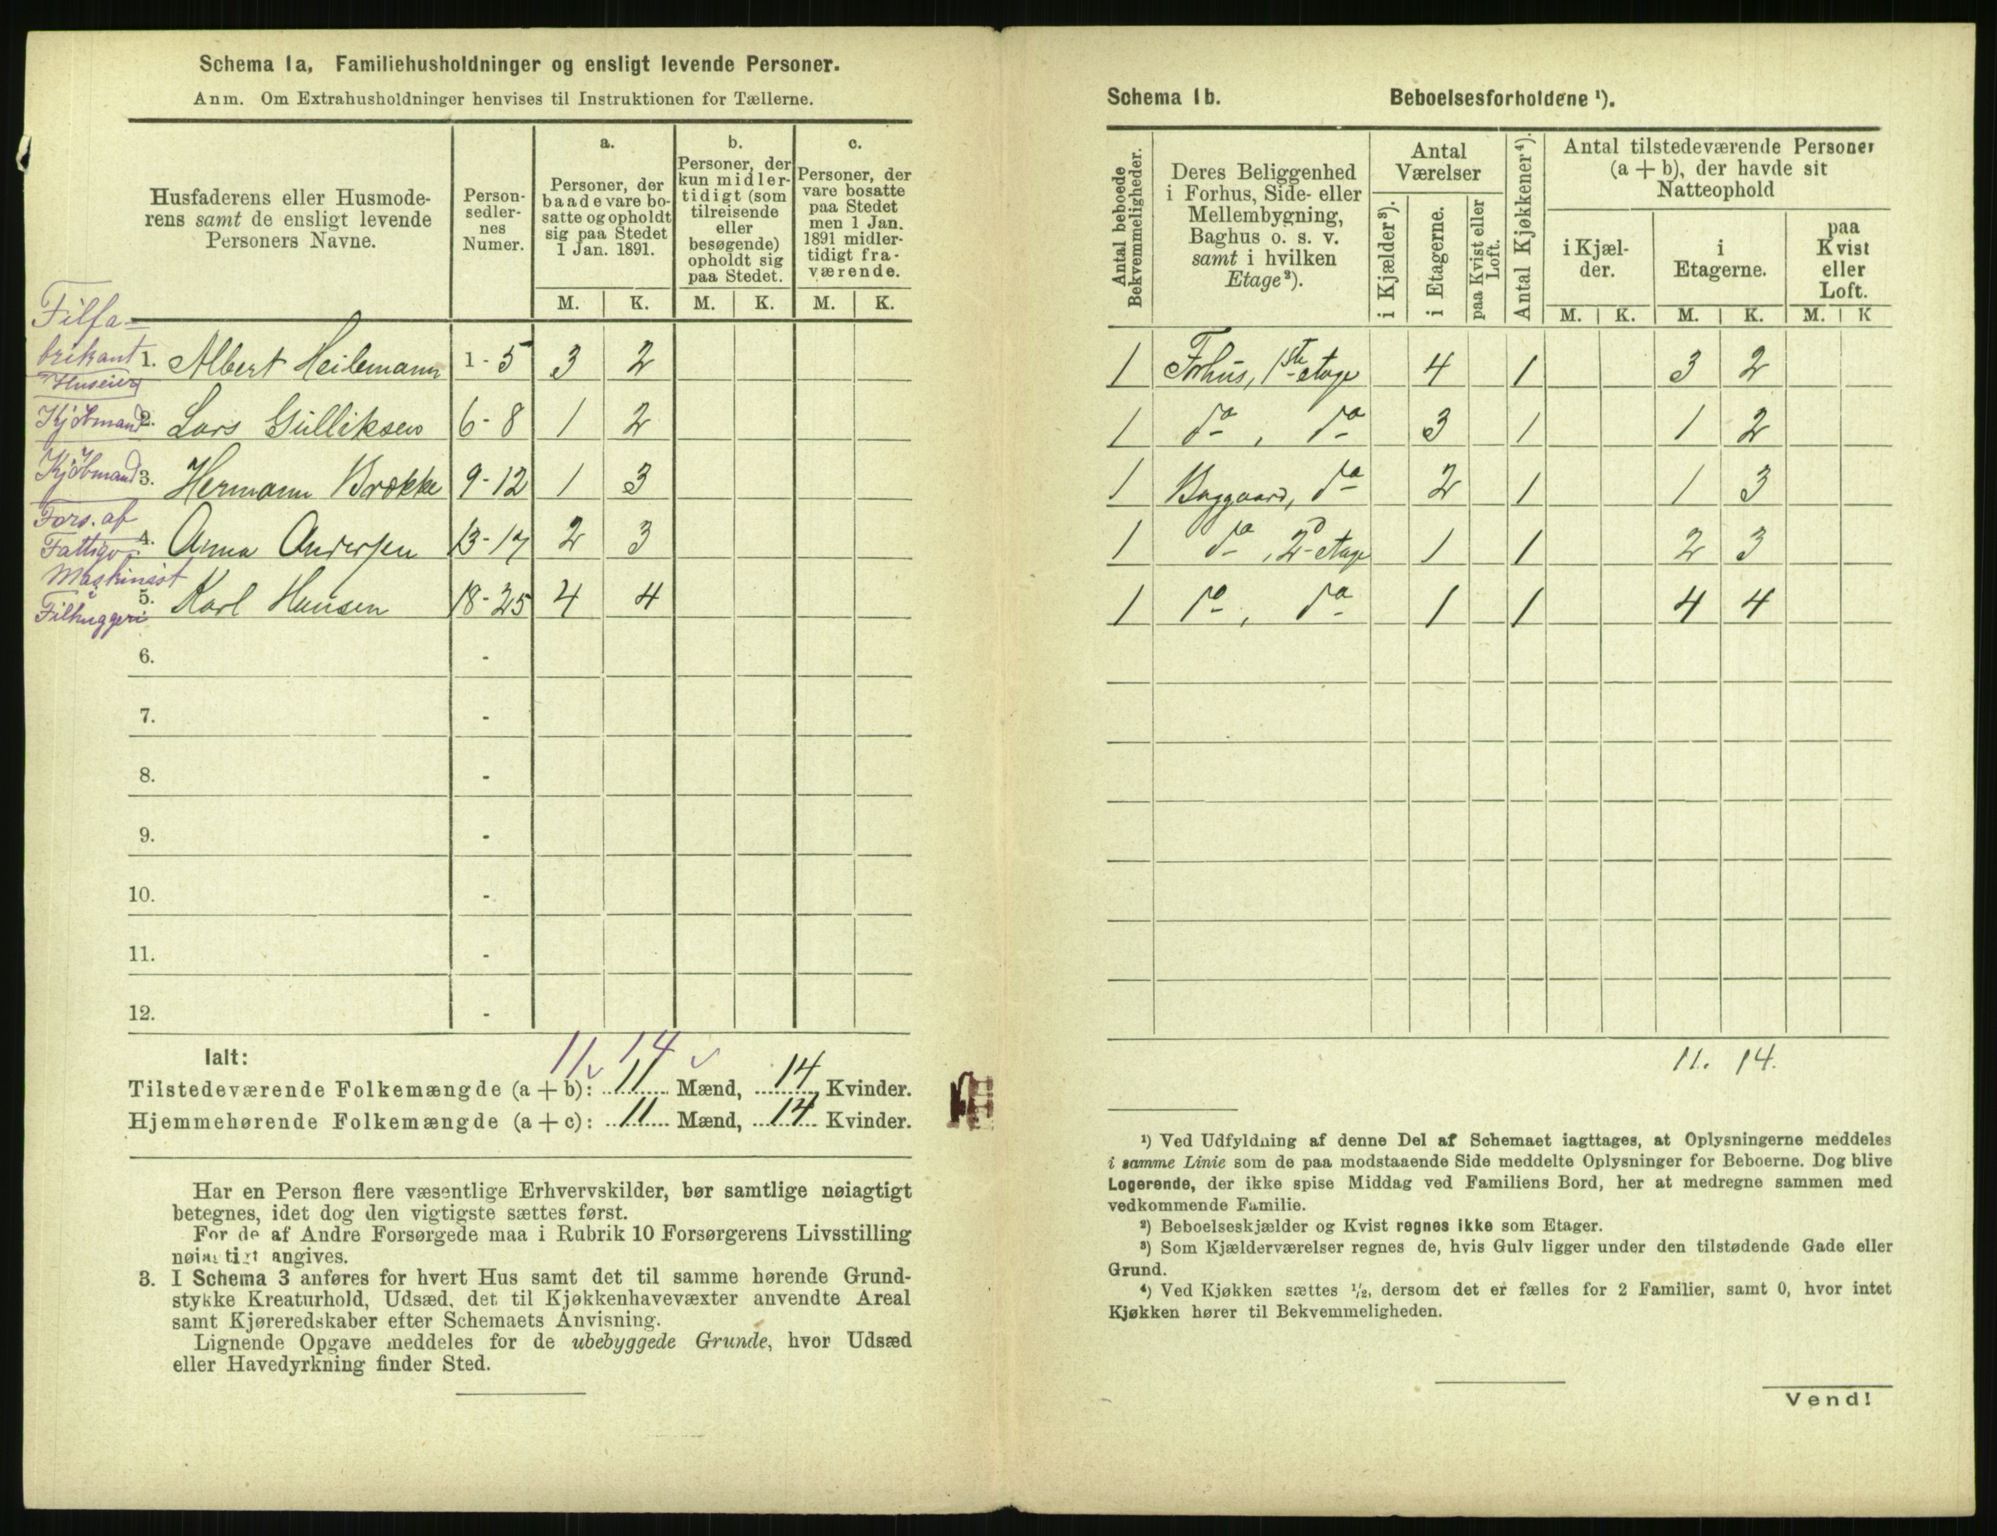 Schema 1a, Familiehusholdninger og ensligt levende Personer.
Anm. Om Extrahusholdninger henvises til Instruktionen for Tællerne.
Husfaderens eller Husmode-
rens samt de ensligt levende
Personers Navne.
Person-
sedler-
nes
Numer.
a.
Personer, der
baade vare bo-
satte og opholdt
sig paa Stedet
1 Jan. 1891.
b.
Personer, der
kun midler-
tidigt (som
tilreisende
eller
besøgende)
opholdt sig
paa Stedet.
c.
Personer, der
vare bosatte
paa Stedet
men 1 Jan.
1891 midler-
tidigt fra-
værende.
M. K. M. K. M. K.
Filfa-
brikant
Huseier
1. Albert Heilemann 1-5 3 2
Kjøbmand 2. Lars Gulliksen 6-8 1 2
Kjøbmand 3. Hermann Brække 9-12 1 3
Fors. af
Fattigv. 4. Anna Andersen 13-17 2 3
Maskinist
Filhuggeri 5. Karl Hansen 18-25 4 4
6. -
7. -
8. -
9. -
10. -
11. -
12. -
11 14
Ialt:
Tilstedeværende Folkemængde (a + b): 11 Mænd, 14 Kvinder.
Hjemmehørende Folkemængde (a + c): 11 Mænd, 14 Kvinder.
Har en Person flere væsentlige Erhvervskilder, bør samtlige nøiagtigt
betegnes, idet dog den vigtigste sættes først.
For de af Andre Forsørgede maa i Rubrik 10 Forsørgerens Livsstilling
nøiagtigt angives.
3. I Schema 3 anføres for hvert Hus samt det til samme hørende Grund-
stykke Kreaturhold, Udsæd, det til Kjøkkenhavevæxter anvendte Areal
samt Kjøreredskaber efter Schemaets Anvisning.
Lignende Opgave meddeles for de ubebyggede Grunde, hvor Udsæd
eller Havedyrkning finder Sted.
Schema 1b. Beboelsesforholdene ¹).
Antal beboede
Bekvemmeligheder.
Deres Beliggenhed
i Forhus, Side- eller
Mellembygning,
Baghus o. s. v.
samt i hvilken
Etage²).
Antal
Værelser
i Kjælder³).
i Etagerne.
paa Kvist eller
Loft.
Antal Kjøkkener⁴).
Antal tilstedeværende Personer
(a + b), der havde sit
Natteophold
i Kjæl-
der.
i
Etagerne.
paa
Kvist
eller
Loft.
M. K. M. K. M. K
1 Forhus, 1ste etage 4 1 3 2
1 do, do 3 1 1 2
1 Baggaard, do 2 1 1 3
1 do, 2d etage 1 1 2 3
1 do, do 1 1 4 4
11. 14.
¹) Ved Udfyldning af denne Del af Schemaet iagttages, at Oplysningerne meddeles
i samme Linie som de paa modstaaende Side meddelte Oplysninger for Beboerne. Dog blive
Logerende, der ikke spise Middag ved Familiens Bord, her at medregne sammen med
vedkommende Familie.
²) Beboelseskjælder og Kvist regnes ikke som Etager.
³) Som Kjælderværelser regnes de, hvis Gulv ligger under den tilstødende Gade eller
Grund.
⁴) Ved Kjøkken sættes ½, dersom det er fælles for 2 Familier, samt 0, hvor intet
Kjøkken hører til Bekvemmeligheden.
Vend!